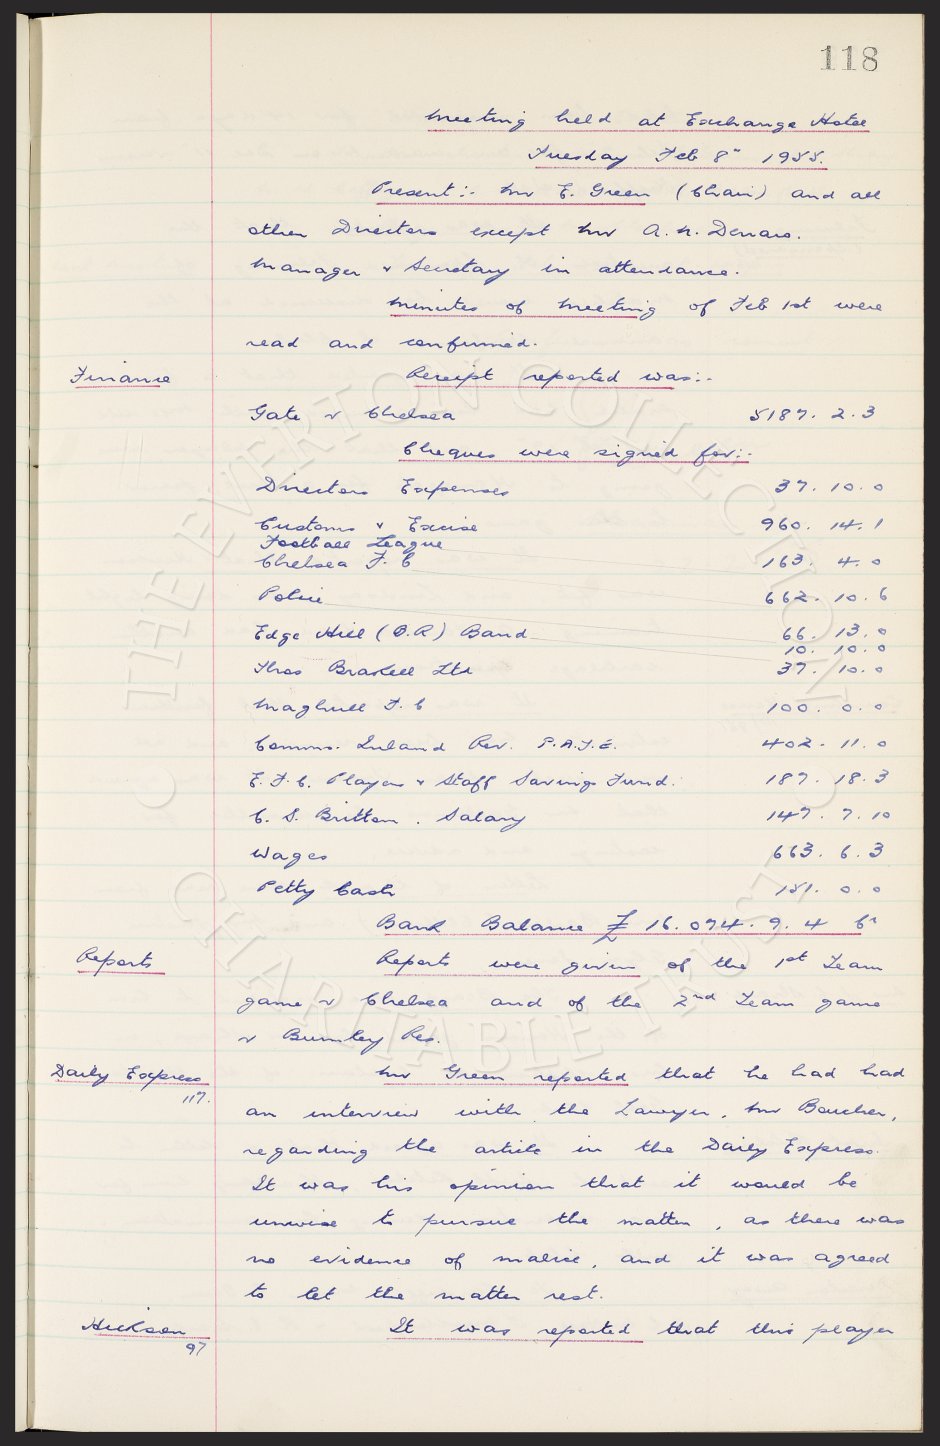 118
Meeting held at Exchange Hotel
Tuesday Feb 8" 1955.
Present:- Mr E. Green (Chair) and all
other Directors except Mr A. N. Denaro.
Manager & Secretary in attendance.
Minutes of Meeting of Feb 1st were
read and confirmed.
Finance Receipt reported was:-
Gate v Chelsea 5187. 2. 3
Cheques were signed for:-
Directors Expenses 37. 10. 0
Customs & Excise 960. 14. 1
Football League
Chelsea F. C 163. 4. 0
Police 662. 10. 6
Edge Hill (B.R) Band 66. 13. 0
10. 10. 0
Thos Braxell Ltd 37. 10. 0
Maghull F. C 100. 0. 0
Comms. Inland Rev. P.A.Y.E. 402. 11. 0
E. F. C. Players & Staff Savings Fund. 187. 18. 3
C. S. Britton. Salary 147. 7. 10
Wages 663. 6. 3
Petty Cash 151. 0. 0
Bank Balance £ 16.074. 9. 4 Cr
Reports Reports were given of the 1st Team
game v Chelsea and of the 2nd Team game
v Burnley Res.
Daily Express Mr Green reported that he had had
117.
an interview with the Lawyer, Mr Boucher,
regarding the article in the Daily Express.
It was his opinion that it would be
unwise to pursue the matter, as there was
no evidence of malice, and it was agreed
to let the matter rest.
Hickson It was reported that this player
97
THE EVERTON COLLECTION
CHARITABLE TRUST